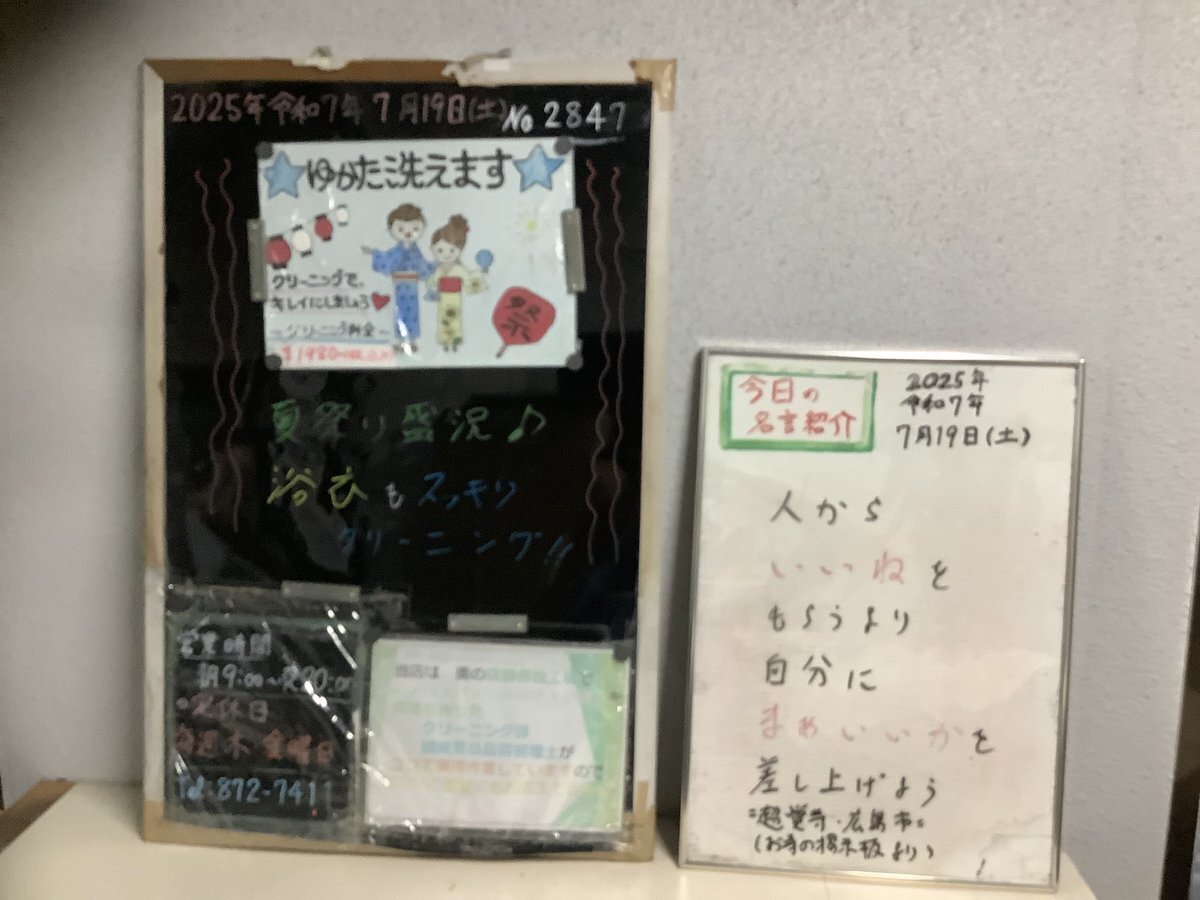 2025年令和7年 7月19日(土) No 2847
ゆかた洗えます
クリーニングで、
キレイにしましょう♥
~クリーニング料金~
祭
夏祭り盛況♪
浴衣もスッキリ
クリーニング!!
営業時間
朝9:00~夜20:00
定休日
毎週木・金曜日
Tel:872-741
当店は
クリーニング師
が
していますので
今日の
名言紹介
2025年
令和7年
7月19日(土)
人から
いいねを
もらうより
自分に
まあいいかを
差し上げよう
=超覚寺・広島市=
(お寺の掲示板より)